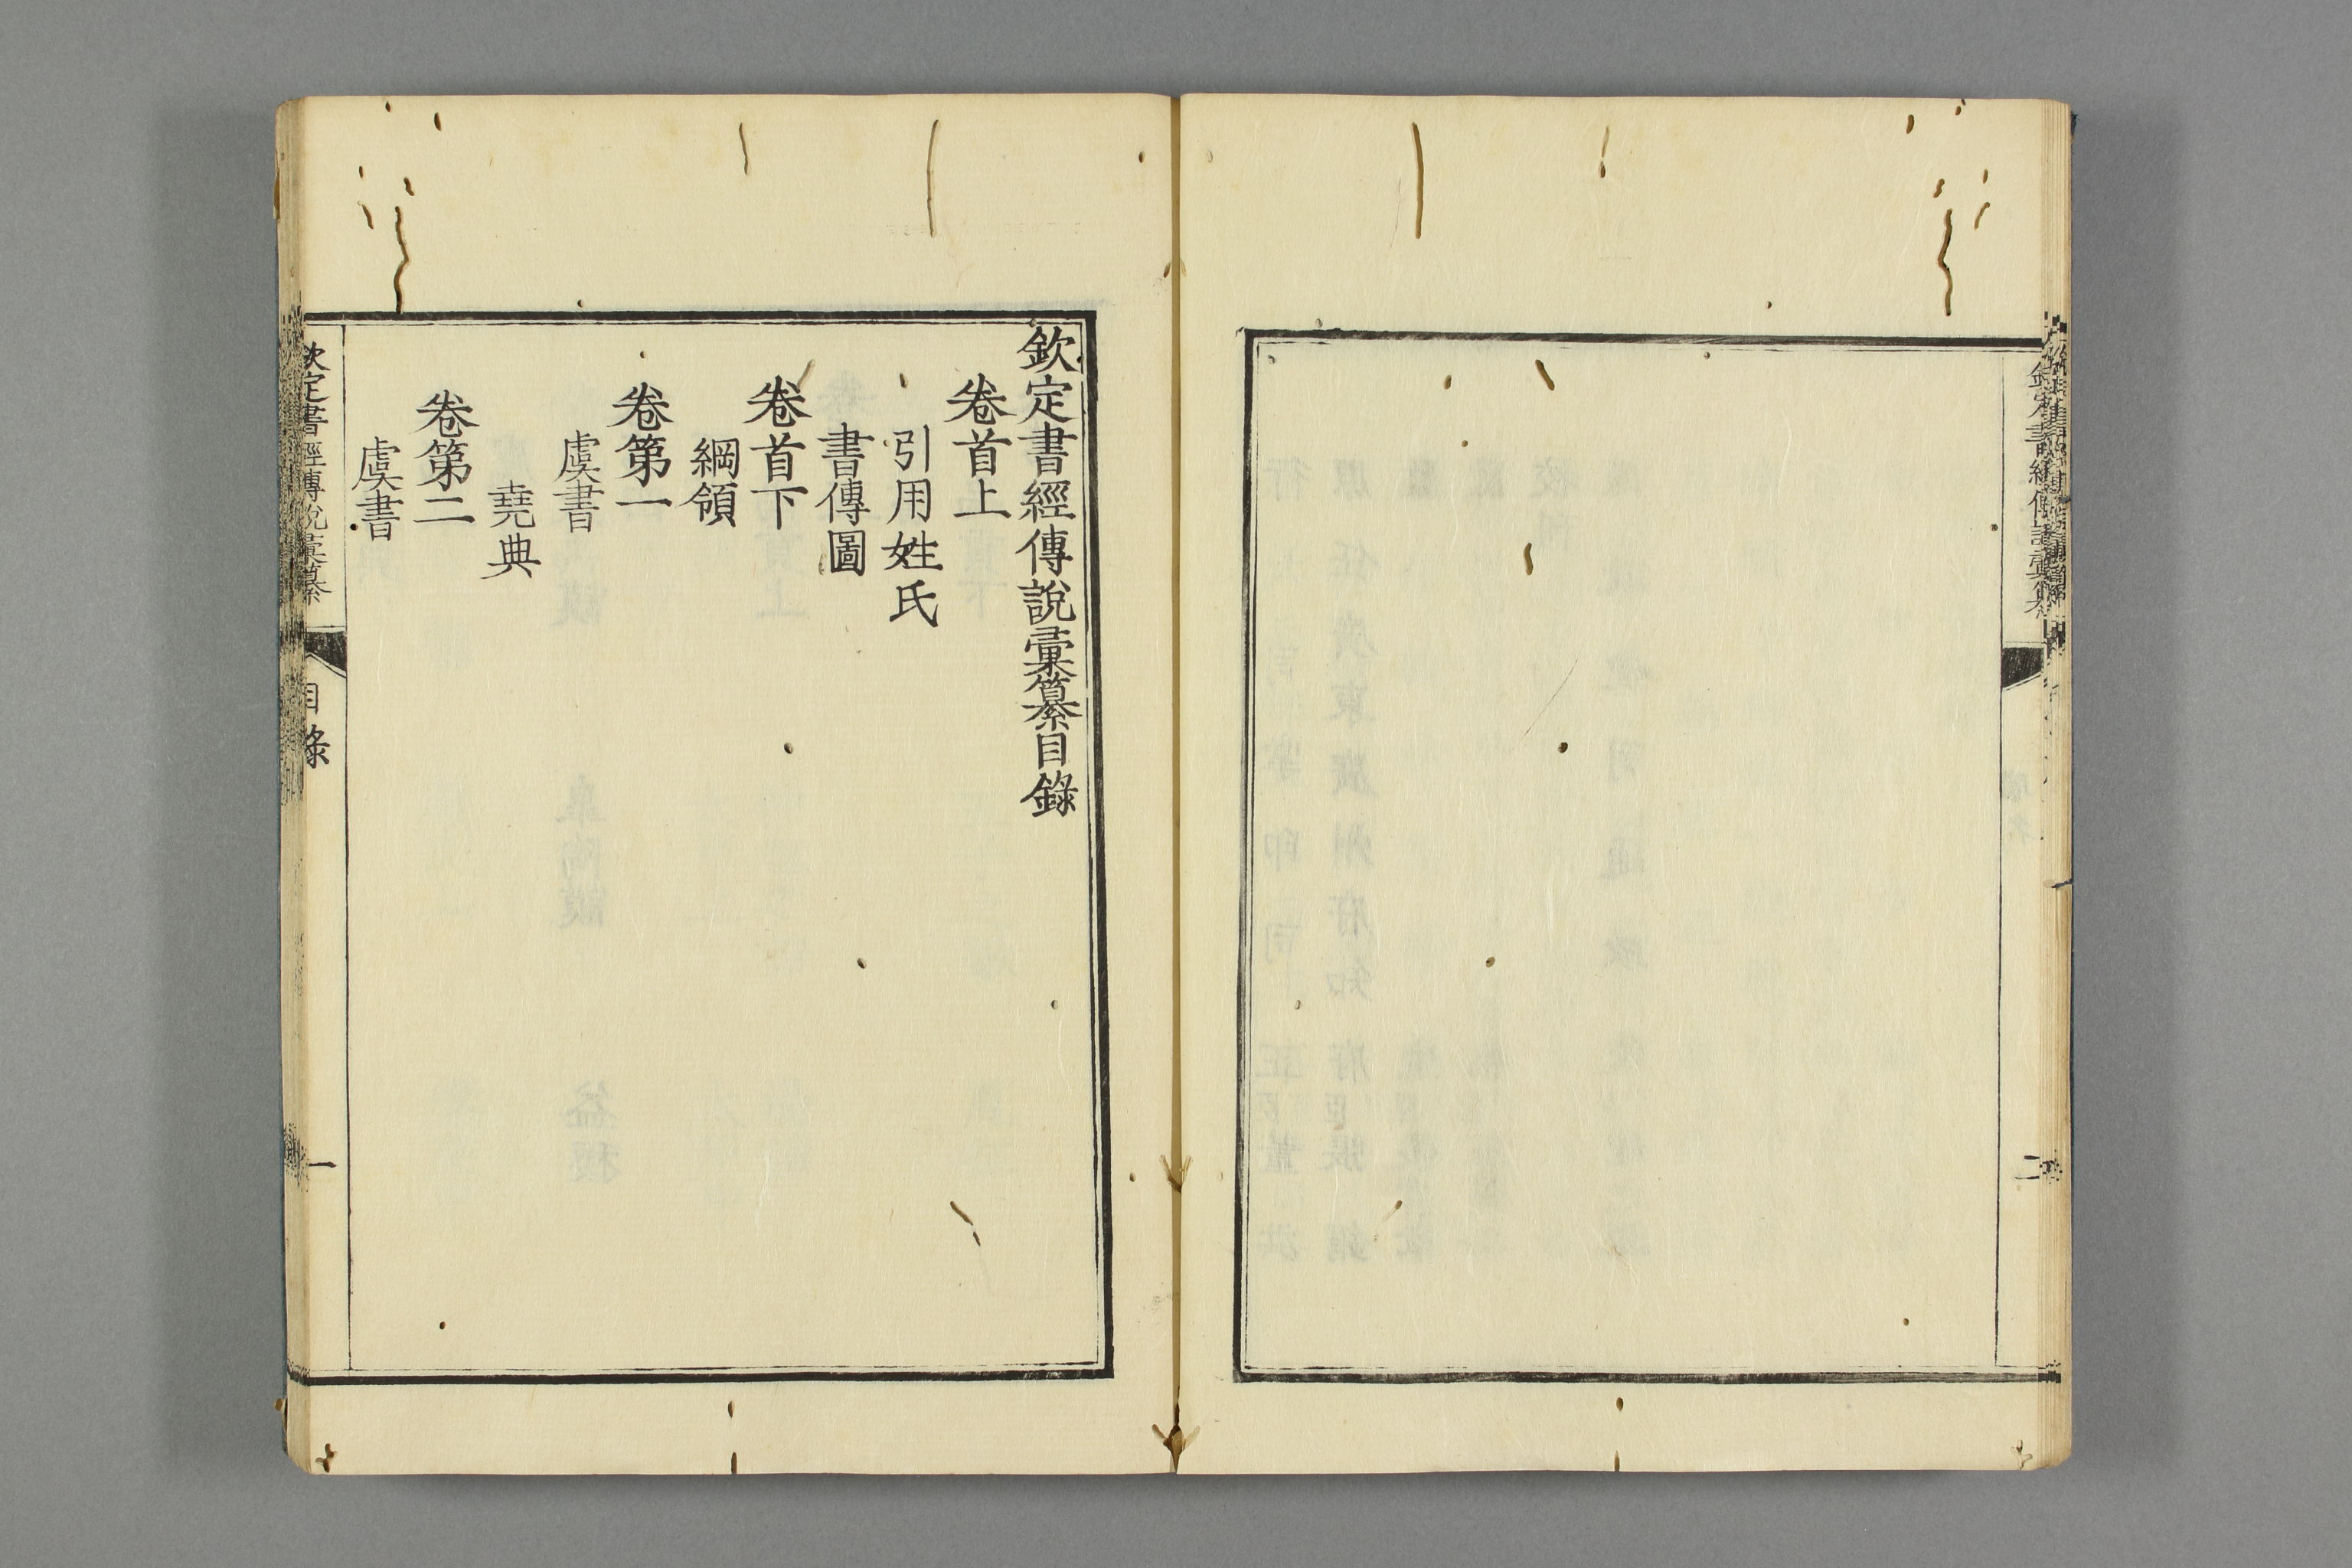 欽定書經傳說彙纂
二
欽定書經傳說彙纂目錄
卷首上
引用姓氏
書傳圖
卷首下
綱領
卷第一
虞書
堯典
卷第二
虞書
欽定書經傳說彙纂
目錄
一